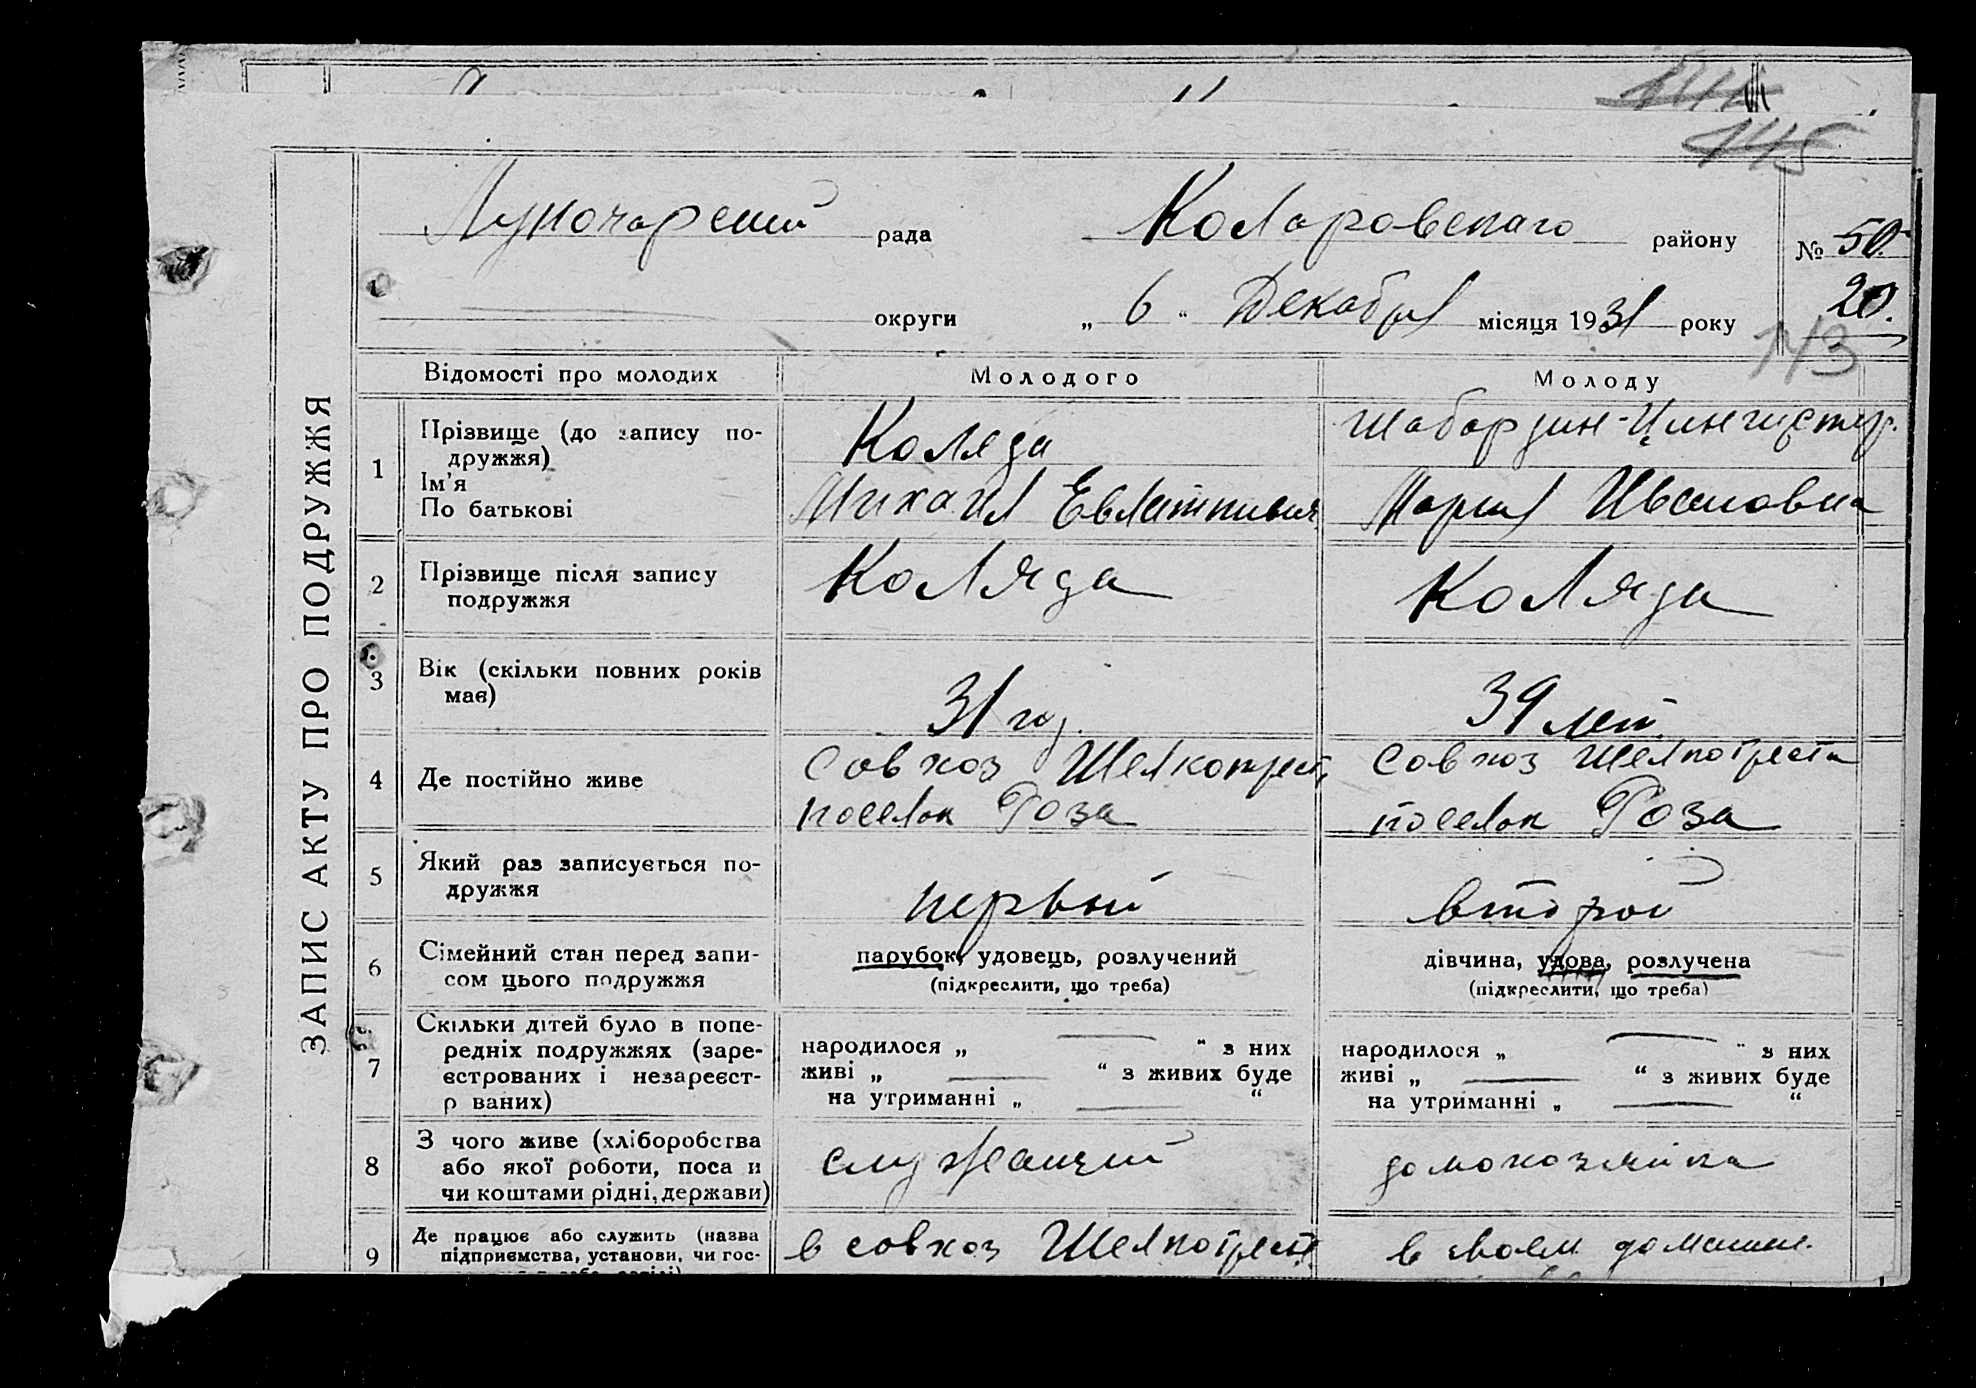 145
Луночарский рада Коларовскаго району № 50.
округи „ 6 “ Декабря місяця 1931 року 20.
143
ЗАПИС АКТУ ПРО ПОДРУЖЖЯ
Відомості про молодих Молодого Молоду
1 Прізвище (до запису по-
дружжя)
Ім’я
По батькові
Коляда
Михаил
Мария Ивановна
2 Прізвище після запису
подружжя
Коляда Коляда
3 Вік (скільки повних років
має)
31 год. 39 лет.
4 Де постійно живе
совхоз Шелкотрест,
поселок Роза
совхоз Шелкотреста
поселок Роза
5 Який раз записується по-
дружжя
первый второй
6 Сімейний стан перед запи-
сом цього подружжя
парубок, удовець, розлучений
(підкреслити, що треба)
дівчина, удова, розлучена
(підкреслити, що треба)
7 Скільки дітей було в попе-
редніх подружжях (заре-
єстрованих і незареєст-
р ваних)
народилося „ “ з них
живі „ “ з живих буде
на утриманні „ “
народилося „ “ з них
живі „ “ з живих буде
на утриманні „ “
8 З чого живе (хліборобства
або якої роботи, поса и
чи коштами рідні, держави)
служащий домохозяйка
9 Де працює або служить (назва
підприємства, установи, чи гос-
в совхоз Шелкотрест
в своем